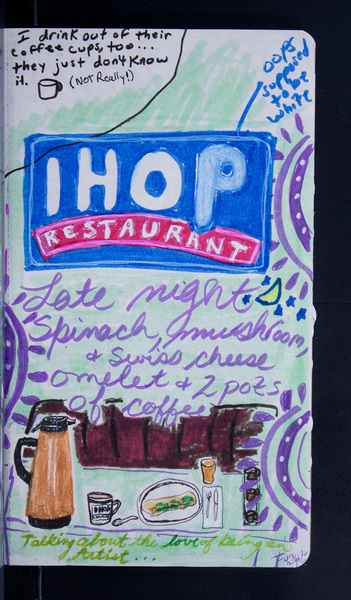 I drink out of their
coffee cups, too...
they just don't know
it. (Not Really!)
oops
supposed
to be
white
IHOP
RESTAURANT
Late night
Spinach, mushroom,
& Swiss cheese
omelet & 2 pots
of coffee
IHOP
Talking about the love of being an
Artist...